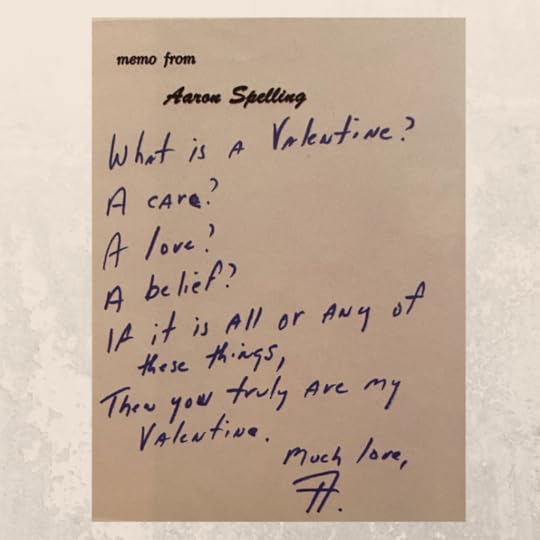 memo from
Aaron Spelling
What is a Valentine?
A care?
A love?
A belief?
If it is all or any of
these things,
Then you truly are my
Valentine.
Much love,
A.